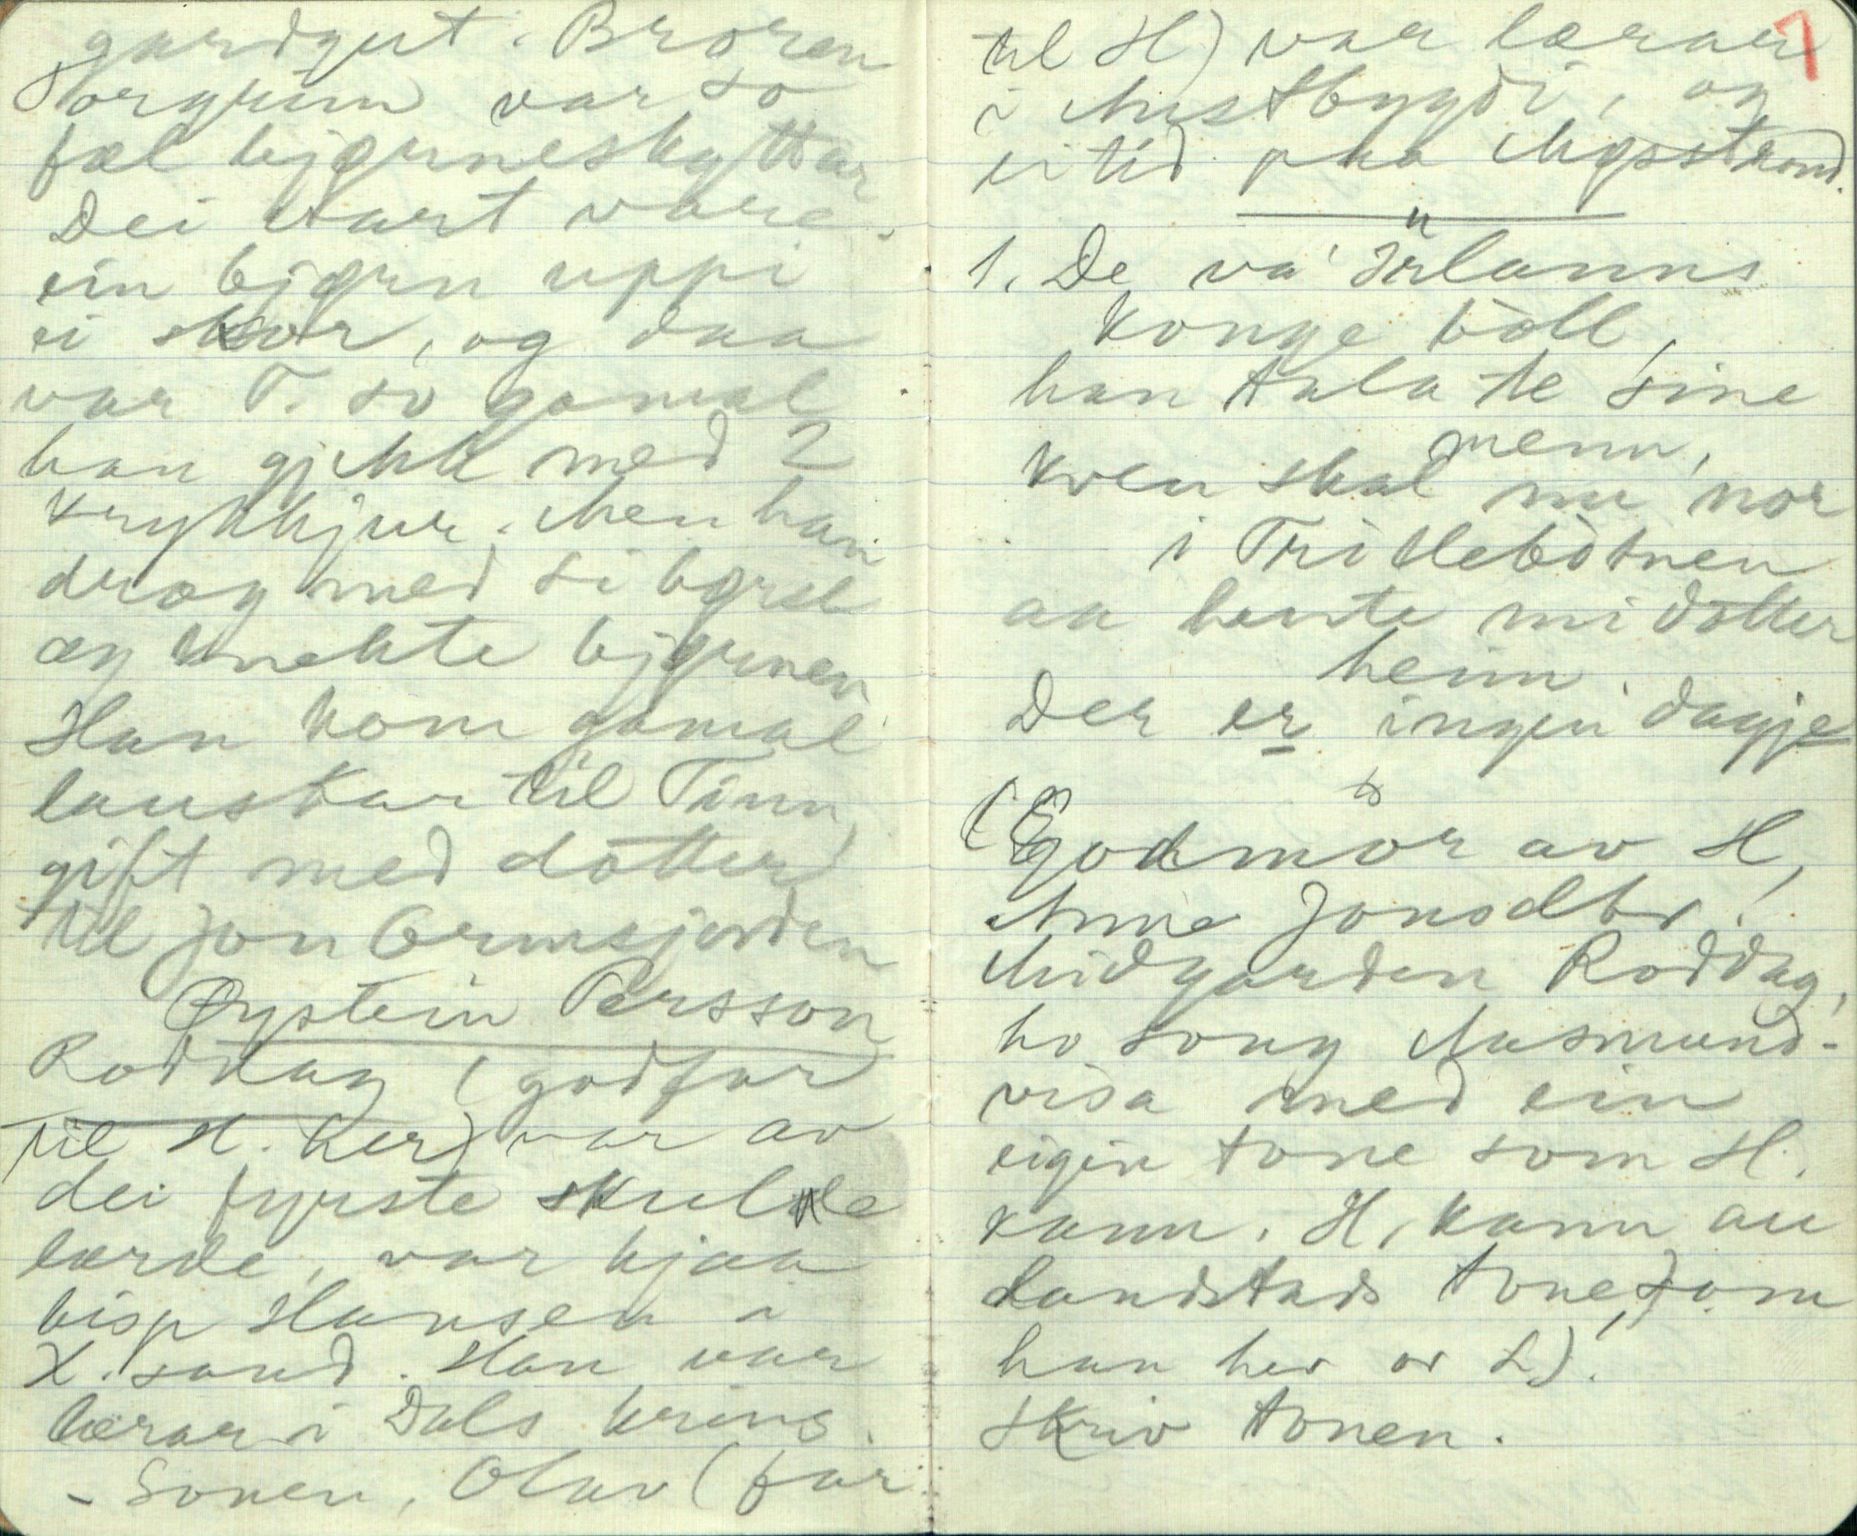 gardgut. Broren
Torgrim var so
fæl bjørneskyttar
Dei vart vare
ein bjørn uppi
ei skor, og daa
var T. so gamal
han gjekk med 2
krykkjur. Men han
drog med si børse
og knekte bjørnen
Han kom gamal
lauskar til Tinn,
gift med dotter
til Jon Ormsjorden
Øystein Persson
Roddag (godfar
til H. her) var av
dei fyrste skule
lærde, var hjaa
bisp Hansen i
X.sand. Han var
lærar i Dals krins.
- Sonen, Olav (far
7
til H) var lærar
i Austbygdi, og
ei tid paa Møsstrond.
1. De va' Irlanns
Konge boll,
han tala te sine
menn,
Kven skal nu nor
i Tritlebotnen
aa hente mi dotter
heim.
Der er ingen dagje
(Godmor av H,
Anne Jonsdtr.
Midgarden Roddag,
ho song Aasmund-
visa med ein
eigen tone som H.
kann. H. kann au
Landstads tone, som
han hev or L).
Skriv tonen.